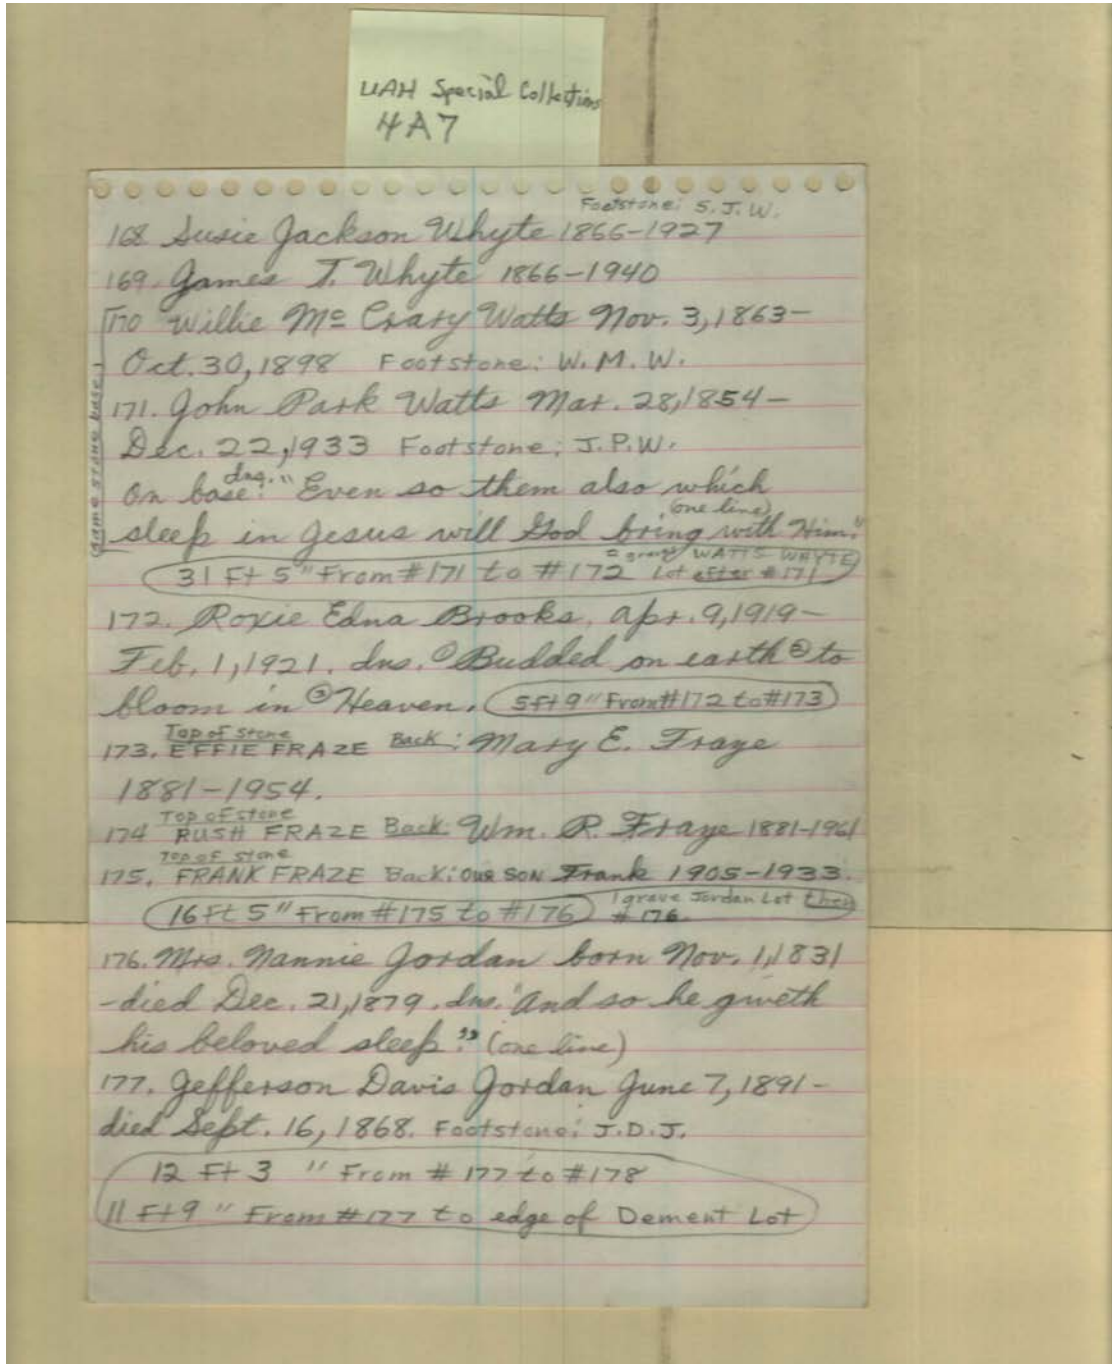 UAH Special Collections
4A7
Footstone: S.J.W.
168 Susie Jackson Whyte 1866-1927
169. James T. Whyte 1866-1940
170 Willie Mc Crary Watts Nov. 3, 1863-
Oct. 30, 1898 Footstone: W.M.W.
same stone base
171. John Park Watts Mar. 28, 1854-
Dec. 22, 1933 Footstone: J.P.W.
dns.
On base: "Even so them also which
(one line)
sleep in Jesus will God bring with Him."
grave WATTS WHYTE
31 Ft 5" From #171 to #172 Lot after #171
172. Roxie Edna Brooks, Apr. 9, 1919-
Feb. 1, 1921. dns. ① Budded on earth ② to
bloom in ③ Heaven. 5ft 9" From #172 to #173
Top of stone
173. EFFIE FRAZE Back: Mary E. Fraze
1881-1954.
Top of stone
174 RUSH FRAZE Back: Wm. R. Fraze 1881-1961
Top of stone
175. FRANK FRAZE Back: OUR SON Frank 1905-1933.
16 Ft 5" From #175 to #176 1 grave Jordan Lot then
#176
176. Mrs. Nannie Jordan born Nov. 1, 1831
-died Dec. 21, 1879. dns. "And so he giveth
his beloved sleep." (one line)
177. Jefferson Davis Jordan June 7, 1891-
died Sept. 16, 1868. Footstone: J.D.J.
12 Ft 3 " From #177 to #178
11 Ft 9 " From #177 to edge of Dement Lot